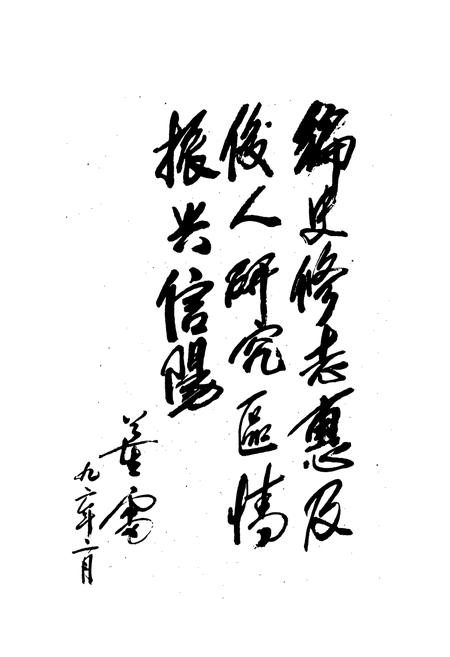 編史修志惠及
後人研究區情
振兴信陽
董雷
九六年二月